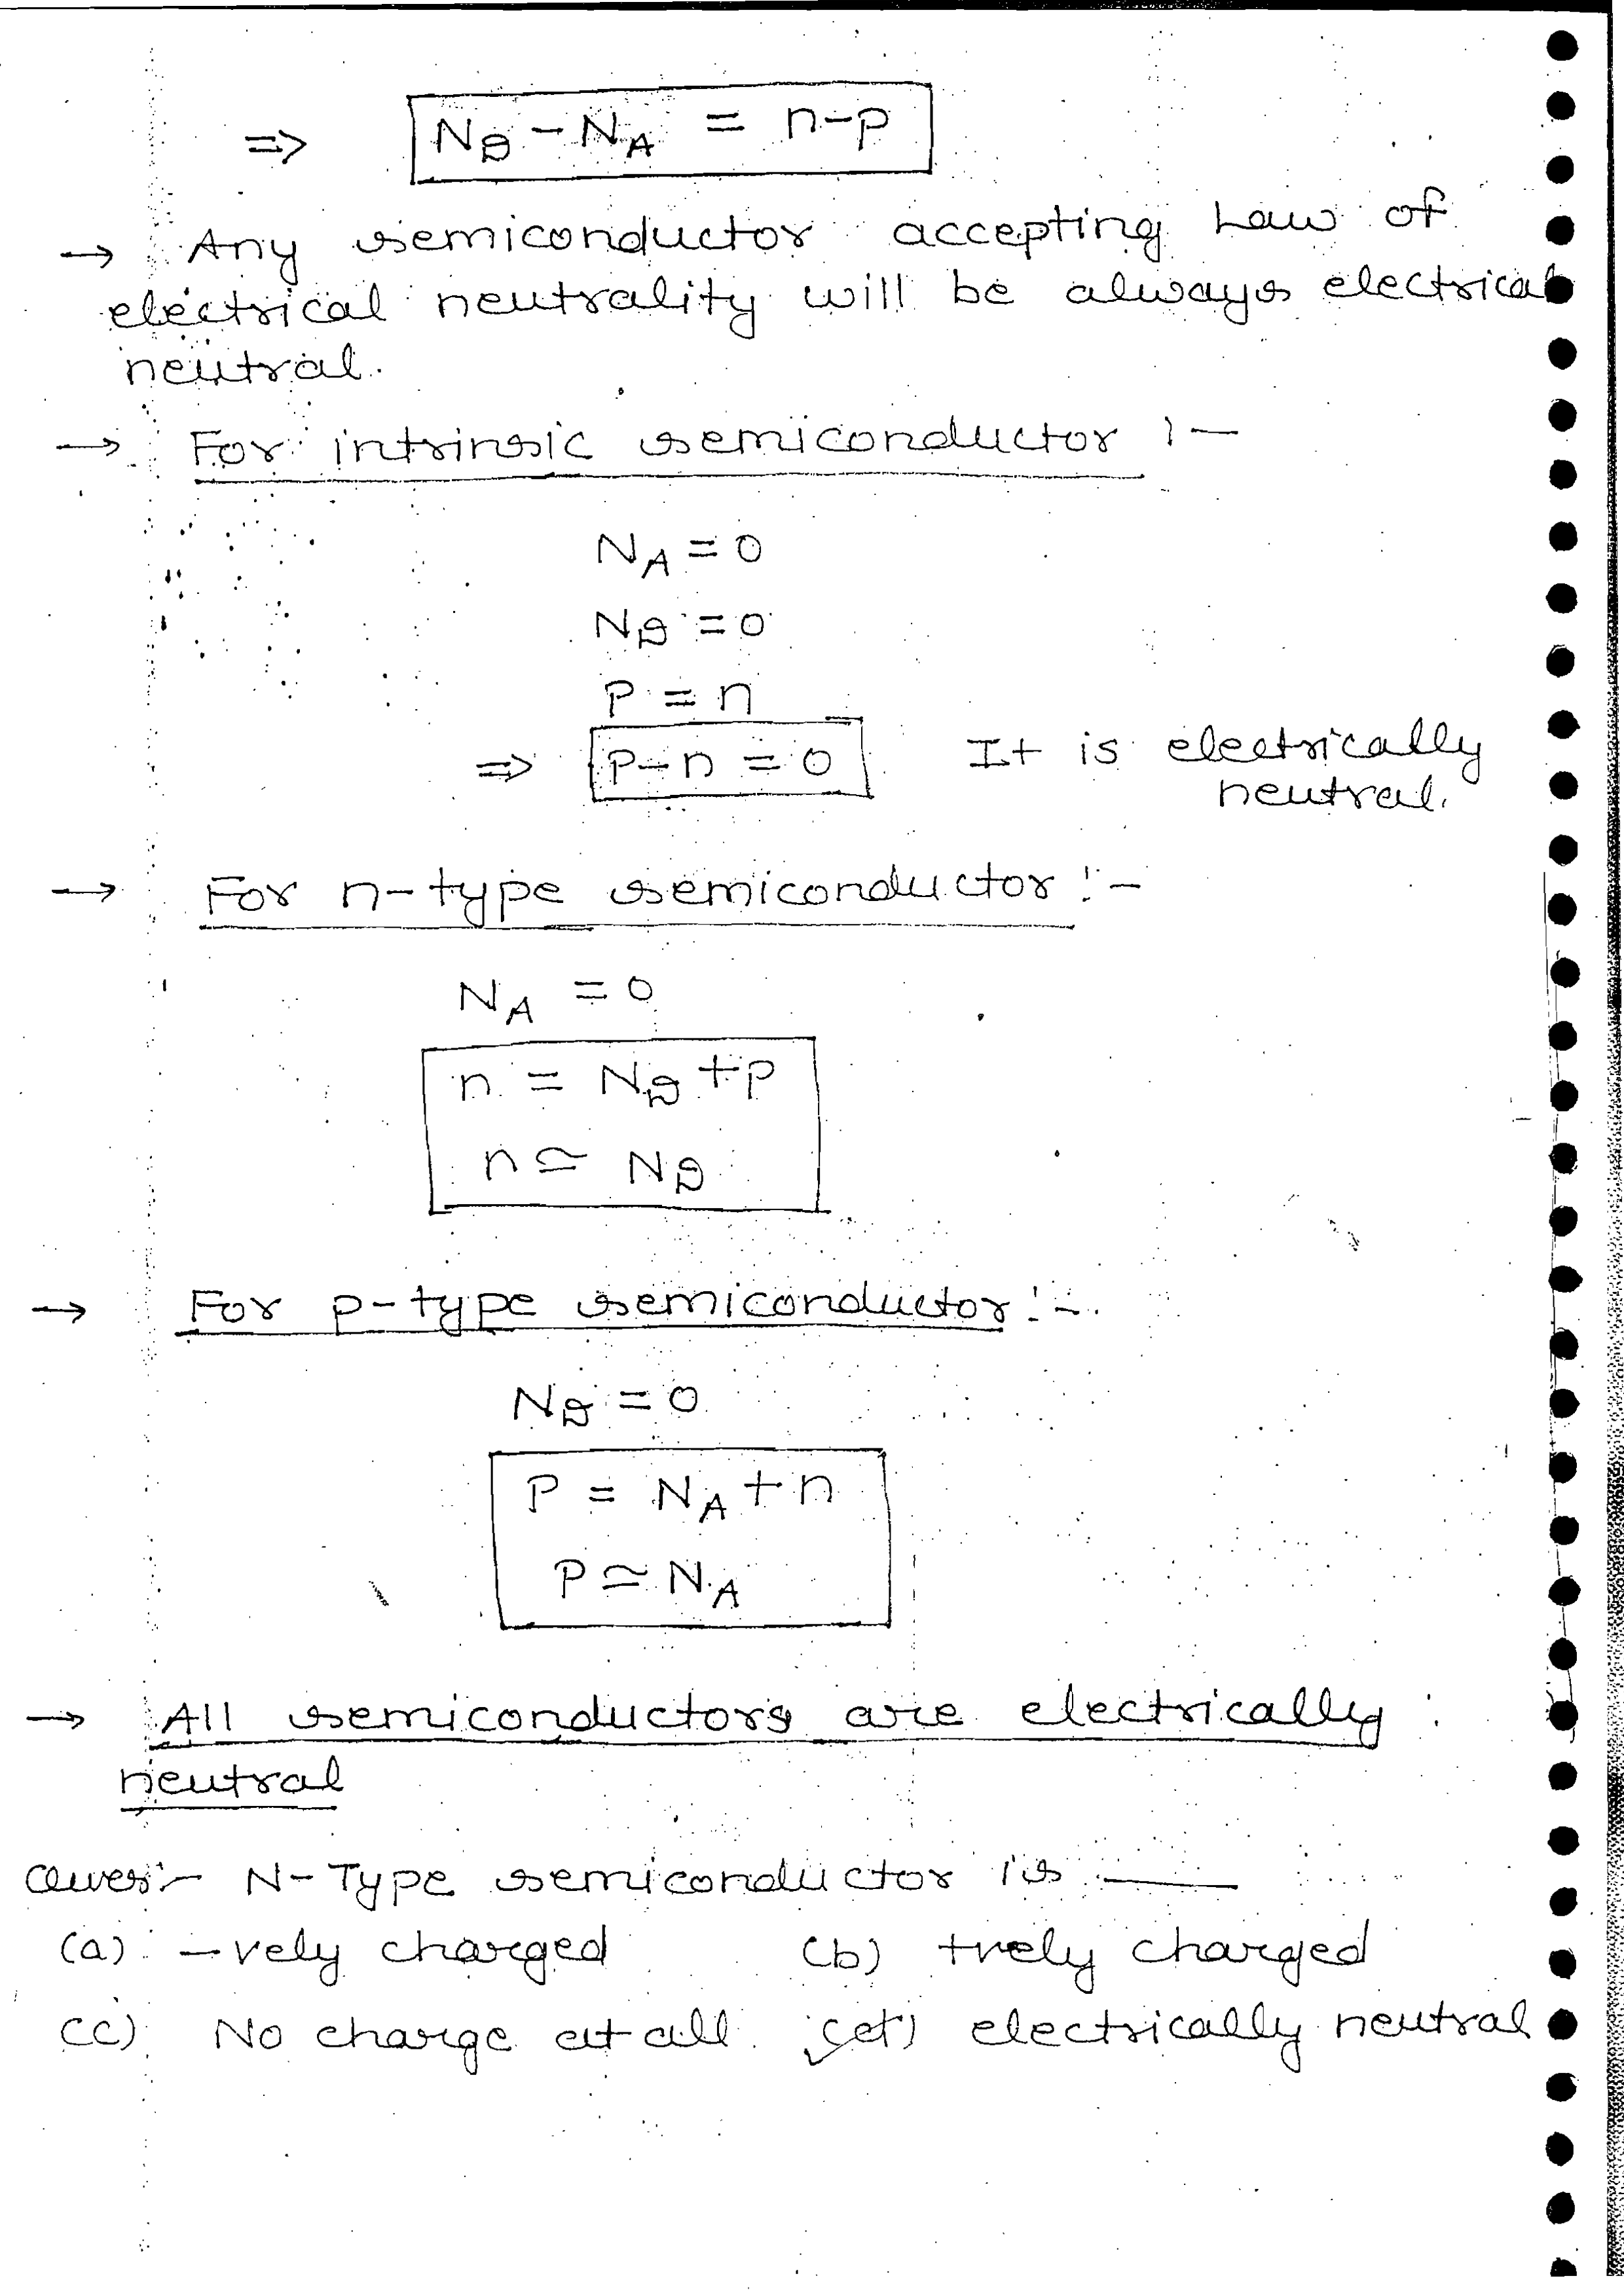 ⇒ N_D - N_A = n-p
→ Any semiconductor accepting Law of
electrical neutrality will be always electrical
neutral.
→ For intrinsic semiconductor :-
N_A = 0
N_D = 0
P = n
⇒ P-n = 0 It is electrically
neutral.
→ For n-type semiconductor :-
N_A = 0
n = N_D + p
n ≃ N_D
→ For p-type semiconductor :-
N_D = 0
P = N_A + n
P ≃ N_A
→ All semiconductors are electrically
neutral
Ques:- N-Type semiconductor is ____
(a) -vely charged (b) +vely charged
(c) No charge at all ✓(d) electrically neutral